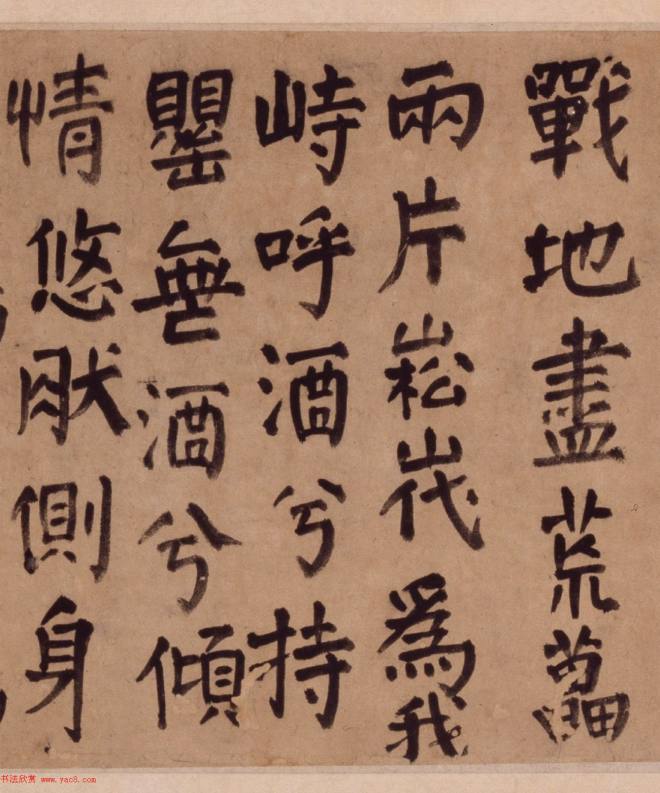 戰地盡荒
兩片崧岱為我
峙呼酒兮持
罌無酒兮傾
情悠肰側身
书法欣赏 www.yac8.com